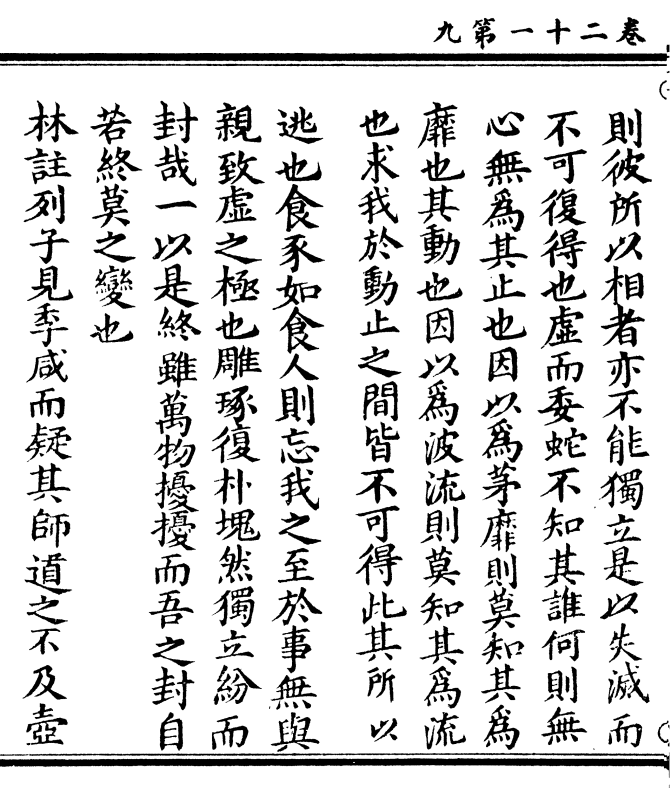 卷二十一第九
則彼所以相者亦不能獨立是以失滅而
不可復得也虛而委蛇不知其誰何則無
心無爲其止也因以爲茅靡則莫知其爲
靡也其動也因以爲波流則莫知其爲流
也求我於動止之間皆不可得此其所以
逃也食豕如食人則忘我之至於事無與
親致虛之極也雕琢復朴塊然獨立紛而
封哉一以是終雖萬物擾擾而吾之封自
若終莫之變也
林註列子見季咸而疑其師道之不及壺